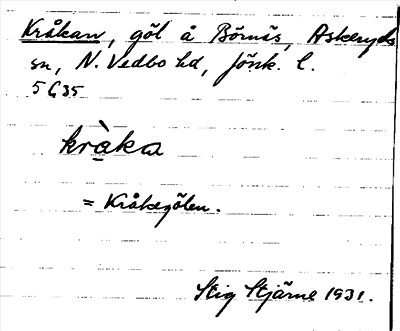 Kråkan, göl å Börnäs, Askeryds
sn, N. Vedbo hd, Jönk. l.
5 G 35
krὰka
= Kråkegölen.
Stig Stjärne 1931.